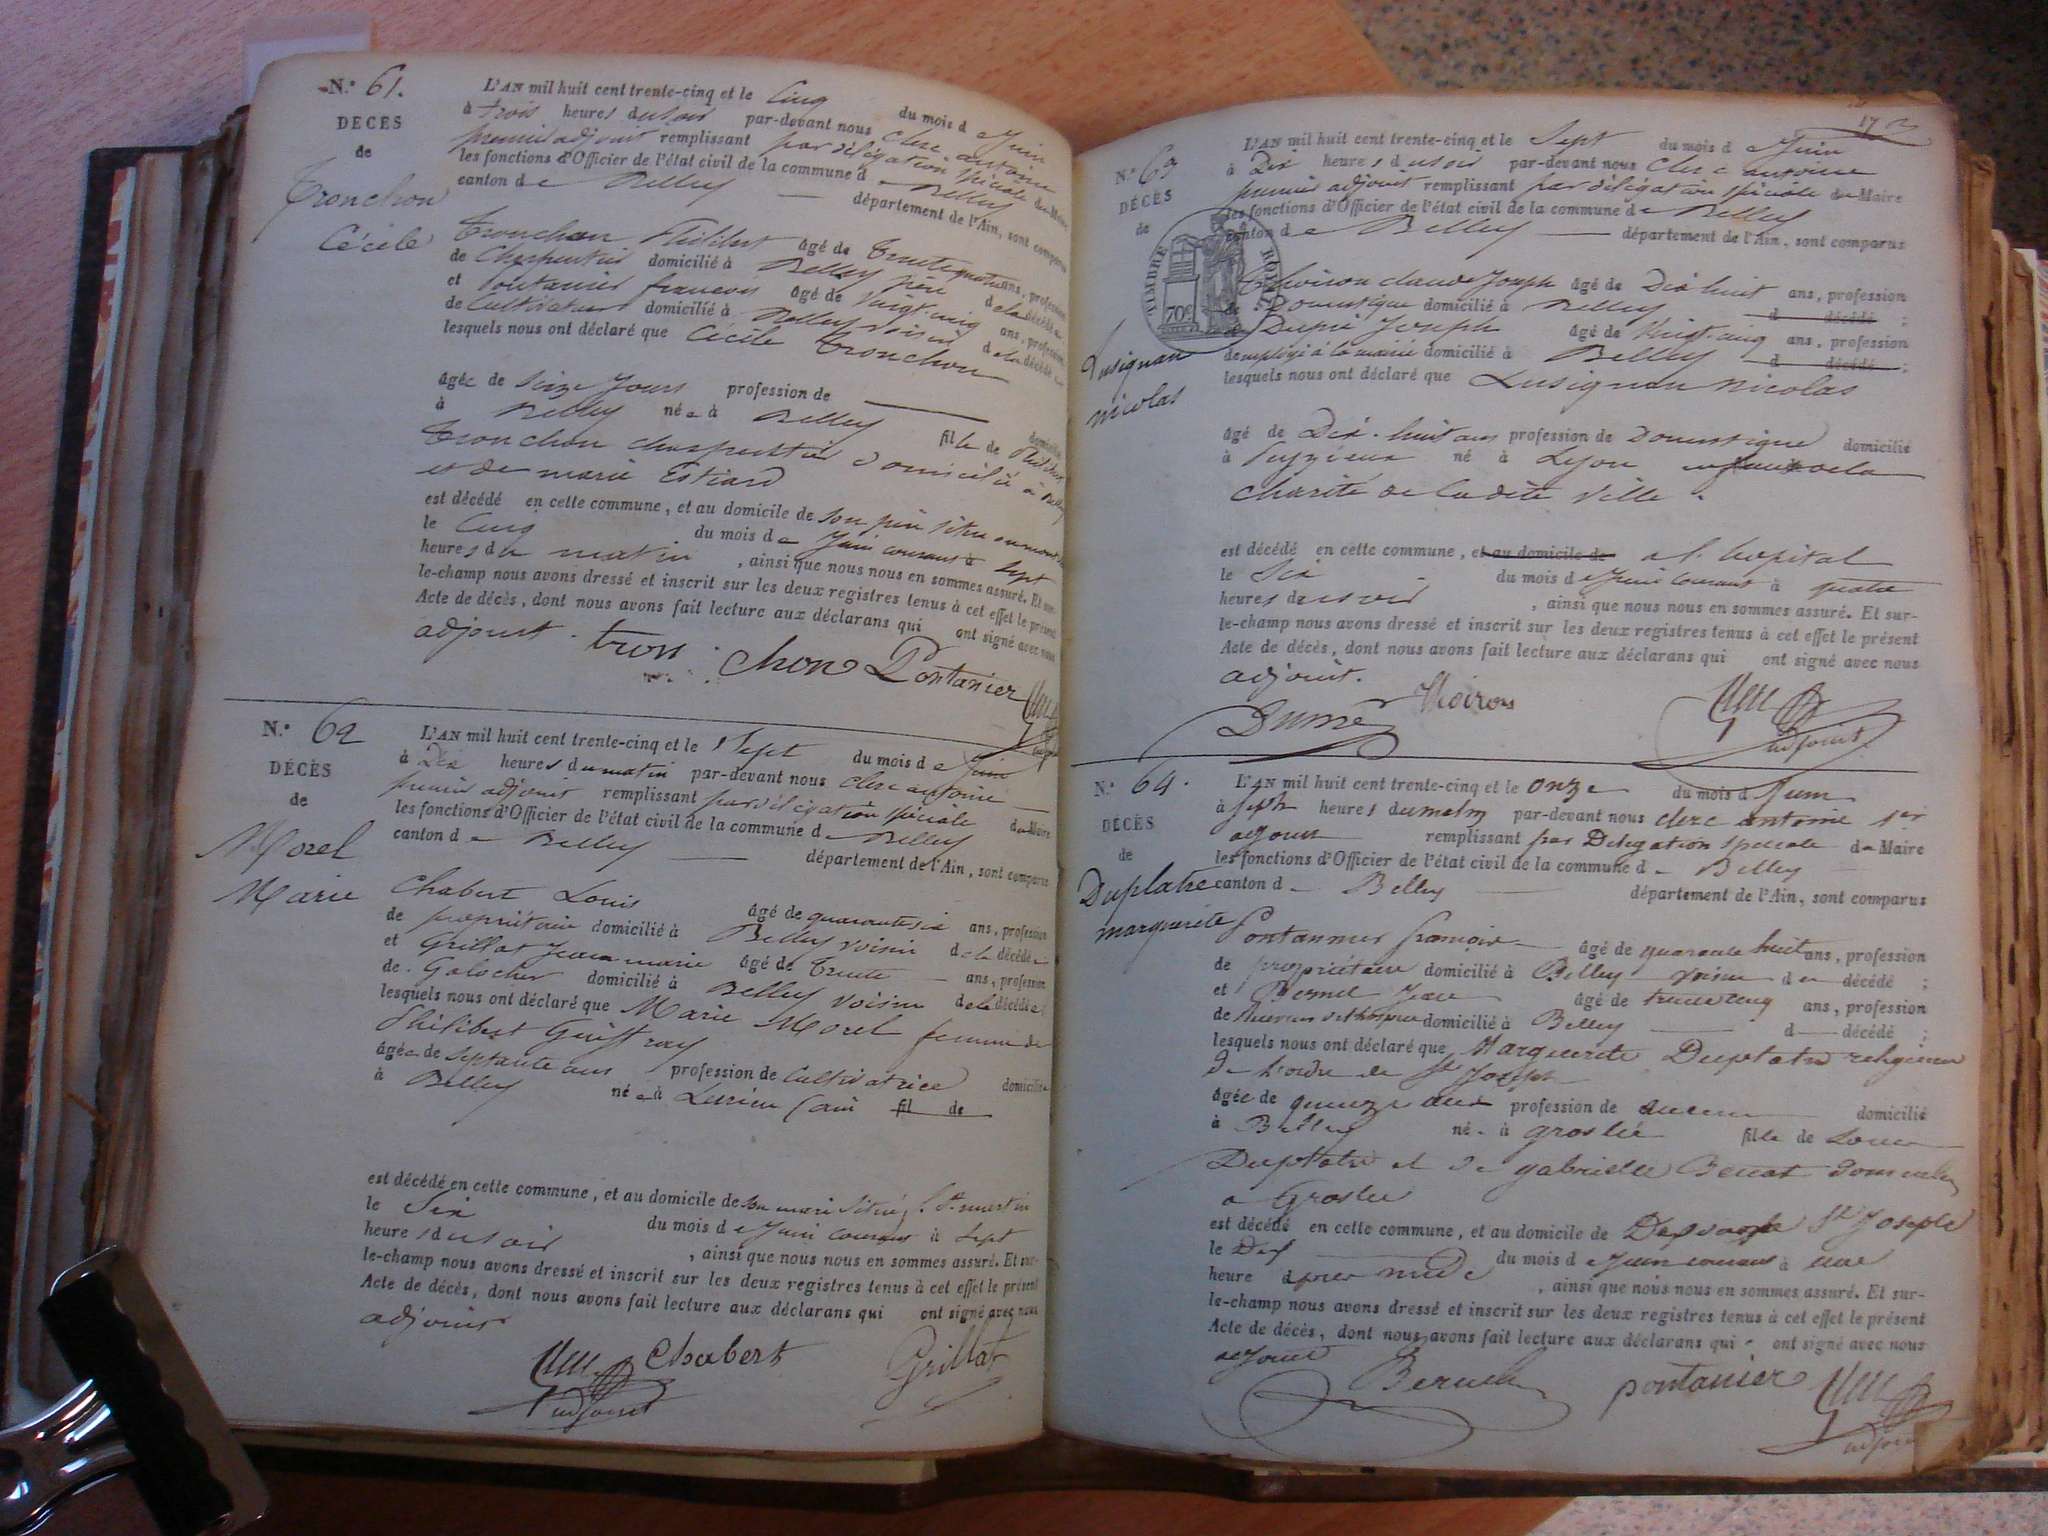 N.° 61.
DECES
de
Tronchon
Cécile
L'AN mil huit cent trente-cinq et le Cinq du mois de Juin
à trois heures du soir par-devant nous Clerc antoine
premier adjoint remplissant par délégation spéciale du Maire
les fonctions d'Officier de l'état civil de la commune de Belley
canton de Belley département de l'Ain, sont comparus
Tronchon Philibert âgé de Trente quatre ans, profession
de Charpentier domicilié à Belley père de la décédée
et Pontanier francois âgé de Vingt-cinq ans, profession
de Cultivateur domicilié à Belley voisin de la décédée
lesquels nous ont déclaré que Cécile Tronchon
âgée de Seize Jours profession de domiciliée
à Belley née à Belley fille de Philibert
Tronchon charpentier domicilié à Belley
et de marie Estiard
est décédé en cette commune, et au domicile de son père situé
le Cinq du mois de Juin courant à Sept
heures du matin, ainsi que nous nous en sommes assuré. Et sur-
le-champ nous avons dressé et inscrit sur les deux registres tenus à cet effet le présent
Acte de décès, dont nous avons fait lecture aux déclarans qui ont signé avec nous
adjoint. tron chon Pontanier
N.° 62
DÉCÈS
de
Morel
Marie
L'AN mil huit cent trente-cinq et le Sept du mois de Juin
à Dix heures du matin par-devant nous Clerc antoine
premier adjoint remplissant par délégation spéciale du Maire
les fonctions d'Officier de l'état civil de la commune de Belley
canton de Belley département de l'Ain, sont comparus
Chabert Louis âgé de quarante six ans, profession
de propriétaire domicilié à Belley voisin de la décédée
et Grillat Jean marie âgé de Trente ans, profession
de Galocher domicilié à Belley voisin de la décédée
lesquels nous ont déclaré que Marie Morel femme de
Philibert Guiffray
âgée de septante ans profession de Cultivatrice domiciliée
à Belley née à Lurieu (ain fil de
est décédé en cette commune, et au domicile de son mari situé, St. martin
le Six du mois de Juin courant à Sept
heures du soir, ainsi que nous nous en sommes assuré. Et sur-
le-champ nous avons dressé et inscrit sur les deux registres tenus à cet effet le présent
Acte de décès, dont nous avons fait lecture aux déclarans qui ont signé avec nous
adjoint
Chabert Grillat
adjoint
17
N.° 63
DÉCÈS
de
Lusignan
nicolas
TIMBRE ROYAL
70c
L'AN mil huit cent trente-cinq et le Sept du mois de Juin
à Dix heures du soir par-devant nous Clerc antoine
premier adjoint remplissant par délégation spéciale du Maire
les fonctions d'Officier de l'état civil de la commune de Belley
canton de Belley département de l'Ain, sont comparus
Thoiron claude Joseph âgé de Dix huit ans, profession
de Domestique domicilié à Belley d décédé ;
Joseph âgé de Vingt-cinq ans, profession
d'employé à la mairie domicilié à Belley d décédé ;
lesquels nous ont déclaré que Lusignan nicolas
âgé de Dix-huit ans profession de Domestique domicilié
à Pugzieux né à Lyon enfant de la
charité de Ladite Ville.
est décédé en cette commune, et au domicile de a l'hopital
le Six du mois de Juin courant à quatre
heures du soir, ainsi que nous nous en sommes assuré. Et sur-
le-champ nous avons dressé et inscrit sur les deux registres tenus à cet effet le présent
Acte de décès, dont nous avons fait lecture aux déclarans qui ont signé avec nous
adjoint.
Thoiron
adjoint
N.° 64.
DÉCÈS
de
Duplatre
marguerite
L'AN mil huit cent trente-cinq et le onze du mois de Juin
à sept heures du matin par-devant nous clerc antoine 1er
adjoint remplissant par Delegation speciale du Maire
les fonctions d'Officier de l'état civil de la commune de Belley
canton de Belley département de l'Ain, sont comparus
Pontannier francois âgé de quarante huit ans, profession
de propriétaire domicilié à Belley voisin de décédé ;
et Jean âgé de trente cinq ans, profession
de domicilié à Belley d décédé ;
lesquels nous ont déclaré que Marguerite Duplatre religieuse
de l'ordre de St Joseph
âgée de quinze ans profession de domicilié
à Belley née à groslée fille de Louis
Duplatre et de gabrielle domicilies
a Groslée
est décédé en cette commune, et au domicile de St Joseph
le Dix du mois de Juin courant à une
heure apres midi, ainsi que nous nous en sommes assuré. Et sur-
le-champ nous avons dressé et inscrit sur les deux registres tenus à cet effet le présent
Acte de décès, dont nous avons fait lecture aux déclarans qui ont signé avec nous
adjoint
pontanier
adjoint